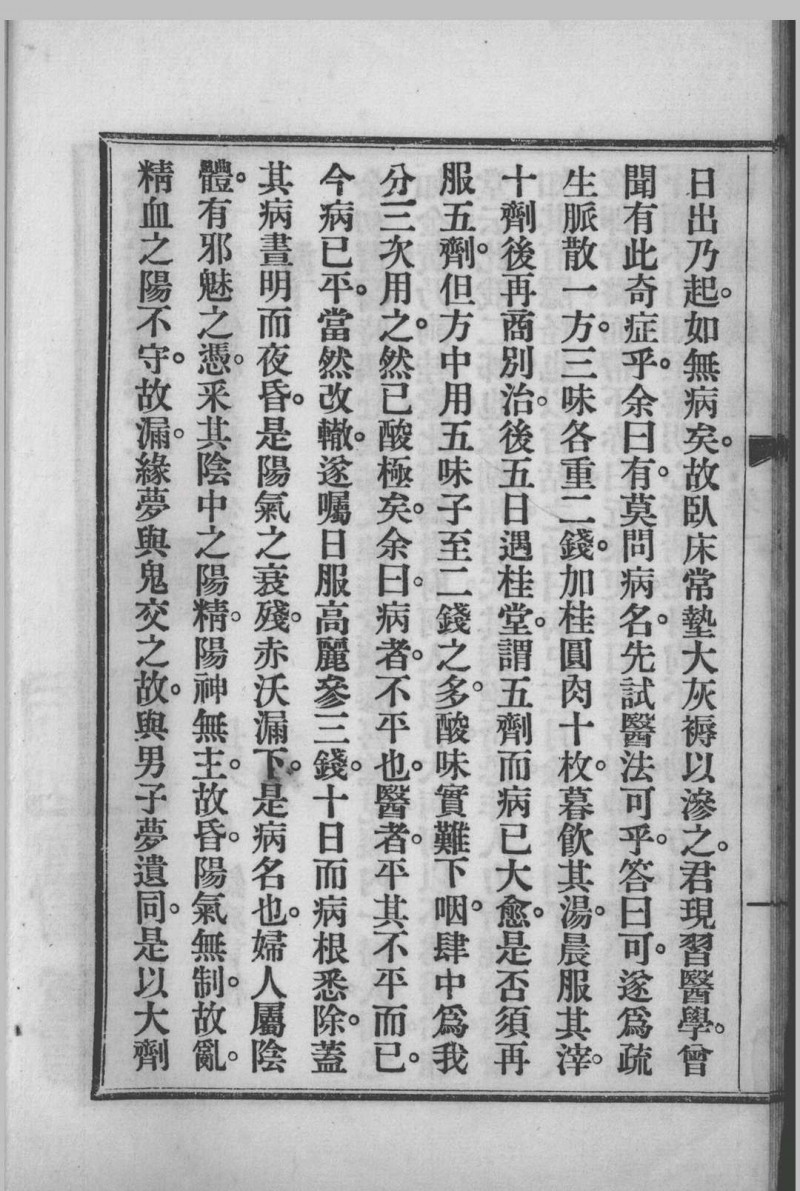 日出乃起。如無病矣。故臥床常墊大灰褥以滲之。君現習醫學。曾
聞有此奇症乎。余曰有。莫問病名。先試醫法可乎。答曰可。遂爲疏
生脈散一方。三味各重二錢。加桂圓肉十枚。暮飮其湯。晨服其滓。
十劑後再商別治。後五日遇桂堂。謂五劑而病已大愈。是否須再
服五劑。但方中用五味子至二錢之多。酸味實難下咽。肆中爲我
分三次用之。然已酸極矣。余曰。病者。不平也。醫者。平其不平而已。
今病已平。當然改轍。遂囑日服高麗參三錢。十日而病根悉除。蓋
其病晝明而夜昏。是陽氣之衰殘。赤沃漏下。是病名也。婦人屬陰
體。有邪魅之憑。釆其陰中之陽精。陽神無主。故昏。陽氣無制。故亂。
精血之陽不守。故漏。緣夢與鬼交之故。與男子夢遺同。是以大劑